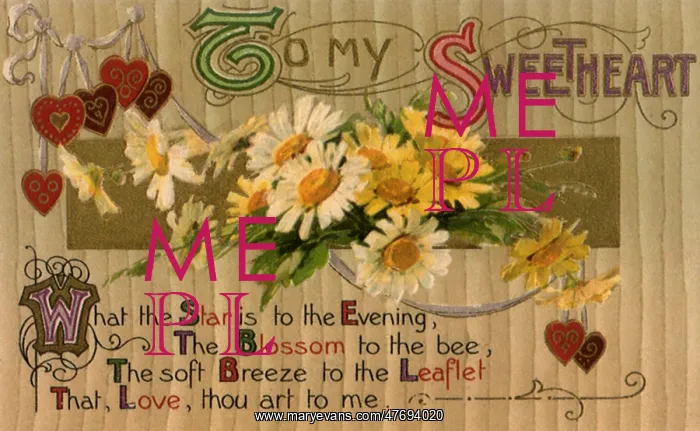 To my Sweetheart
ME
PL
ME
PL
What the Star is to the Evening,
The Blossom to the bee,
The soft Breeze to the Leaflet
That, Love, thou art to me.
www.maryevans.com/47694020